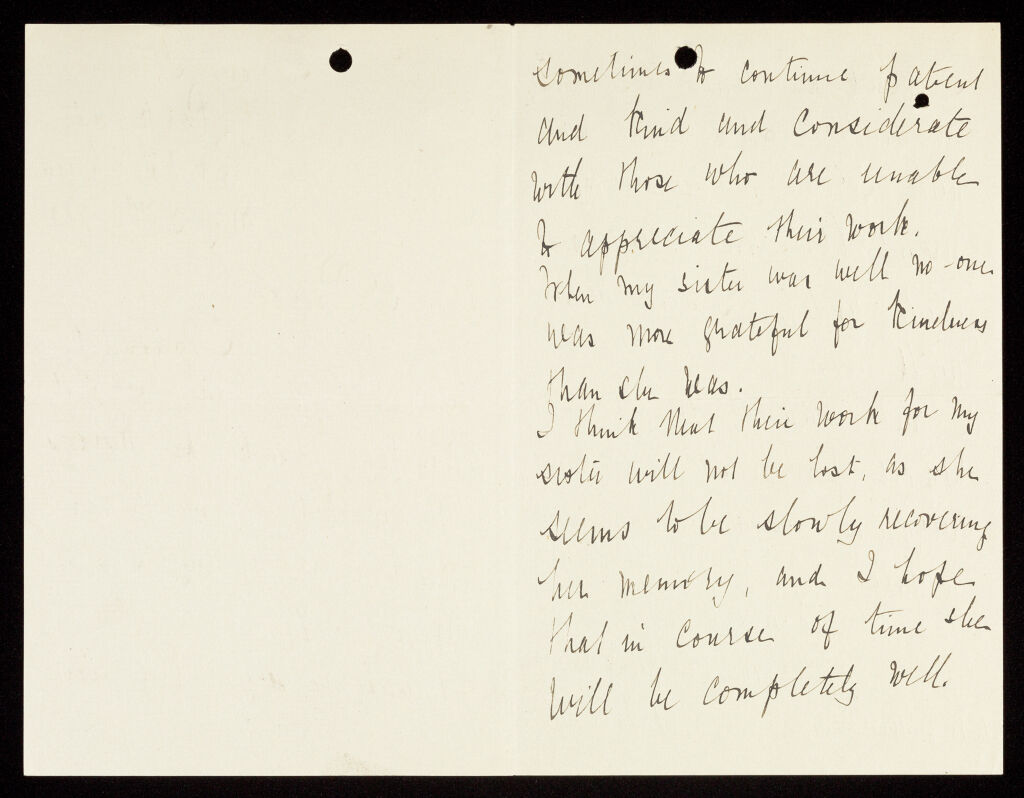 sometimes to continue patient
and kind and considerate
with those who are unable
to appreciate their work.
When my sister was well no-one
was more grateful for kindness
than she was.
I think that their work for my
sister will not be lost, as she
seems to be slowly recovering
her memory, and I hope
that in course of time she
will be completely well.